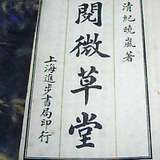 清紀曉嵐著
閱微草堂
上海進步書局印行